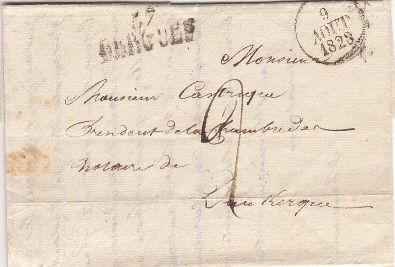 57
BERGUES
9
AOUT
1828
Monsieur
Monsieur Castrique
President de la Chambre des
notaire de
Dunkerque
2